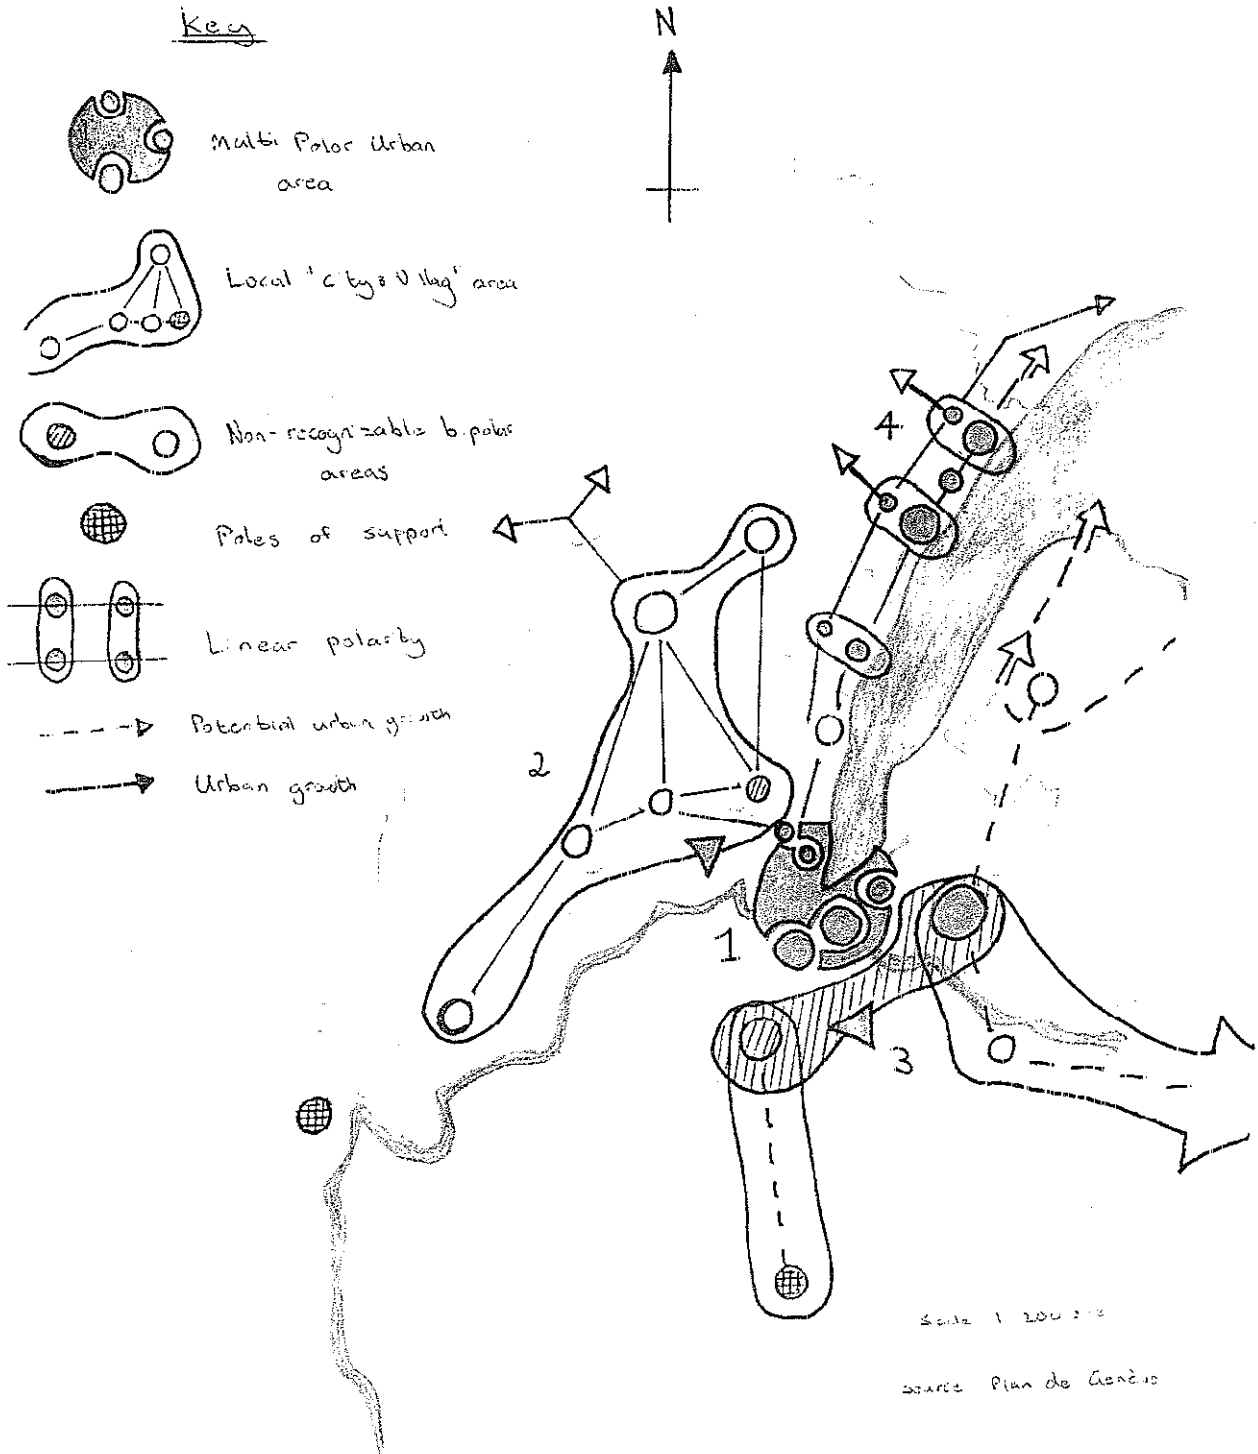 Key
N
Multi Polar Urban
area
Local 'city & Villag' area
Non-recognizable bipolar
areas
Poles of support
Linear polarity
Potential urban growth
Urban growth
4
2
1
3
Scale 1
source Plan de Genève